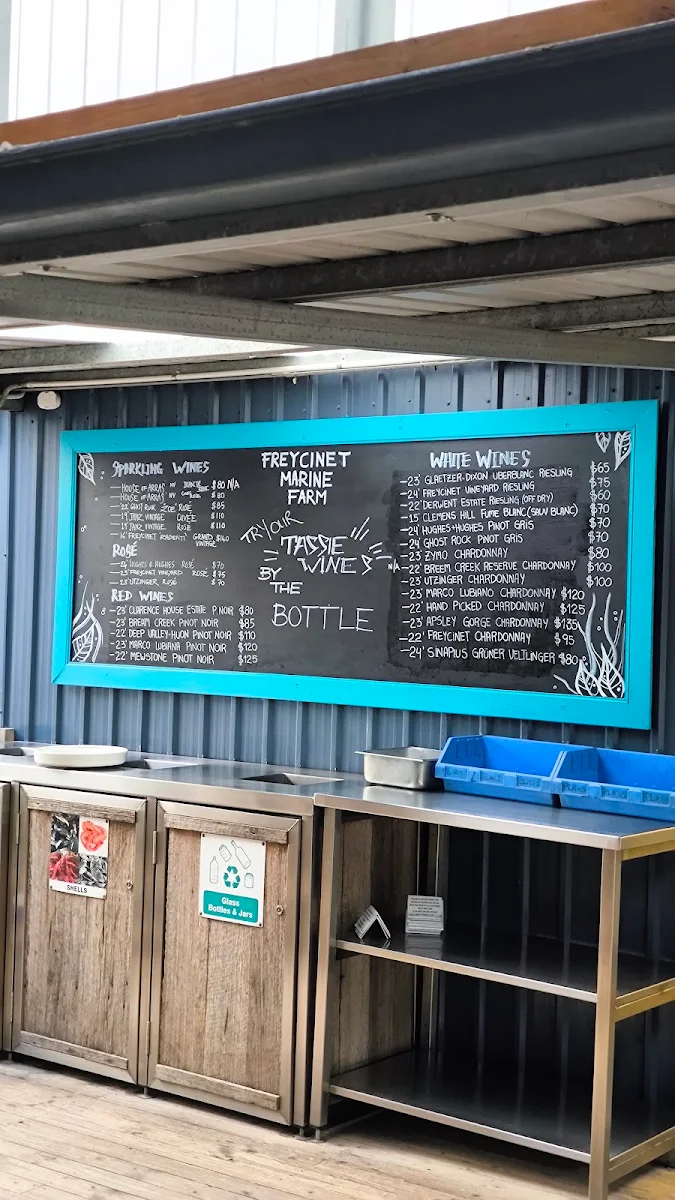 SPARKLING WINES
HOUSE OF ARRAS NV $80 N/A
HOUSE OF ARRAS NV $80
22' GHOST ROCK ZOE' ROSÉ $85
19' JANZ VINTAGE CUVÉE $110
19' JANZ VINTAGE ROSÉ $110
16' FREYCINET GRAND VINTAGE $160
ROSÉ
24' HUGHES & HUGHES ROSÉ $70
23' FREYCINET VINEYARD ROSÉ $75
23' UTZINGER ROSÉ $70
RED WINES
-23' CLARENCE HOUSE ESTATE P.NOIR $80
-23' BREAM CREEK PINOT NOIR $85
-22' DEEP VALLEY-HUON PINOT NOIR $110
-23' MARCO LUBIANA PINOT NOIR $120
-22' MEWSTONE PINOT NOIR $125
FREYCINET
MARINE
FARM
TRY OUR
TASSIE
WINES
BY
THE
BOTTLE
WHITE WINES
-23' GLAETZER-DIXON UBERBLANC RIESLING $65
-24' FREYCINET VINEYARD RIESLING $75
-22' DERWENT ESTATE RIESLING (OFF DRY) $60
-15' CLEMENS HILL FUME BLANC (SAUV BLANC) $70
-24' HUGHES+HUGHES PINOT GRIS $70
-24' GHOST ROCK PINOT GRIS $70
-23' ZYMO CHARDONNAY $80
N/A -22' BREEM CREEK RESERVE CHARDONNAY $100
-23' UTZINGER CHARDONNAY $100
-23' MARCO LUBIANO CHARDONNAY $120
-22' HAND PICKED CHARDONNAY $125
-23' APSLEY GORGE CHARDONNAY $135
-22' FREYCINET CHARDONNAY $95
-24' SINAPIUS GRÜNER VELTLINGER $80
SHELLS
Glass
Bottles & Jars